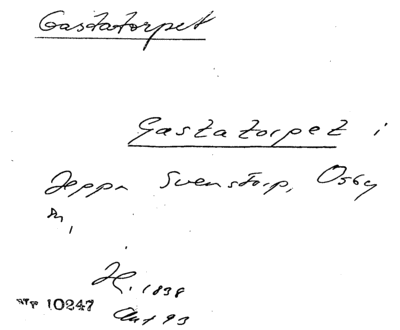 Gastatorpet
Gastatorpet i
Jeppa Svenstorp, Osby
H. 1838
10247